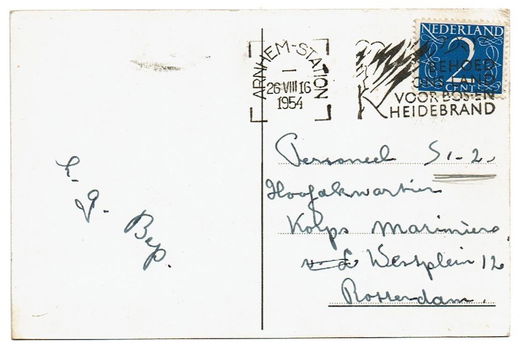 ARNHEM-STATION
26 VIII 16
1954
NEDERLAND
2
CENT
BEHOED
ONS LAND
VOOR BOS-EN
HEIDEBRAND
L.
g.
Bep.
Personeel S1-2
Hoofdkwartier
Korps Mariniers
v. Westplein 12
Rotterdam.